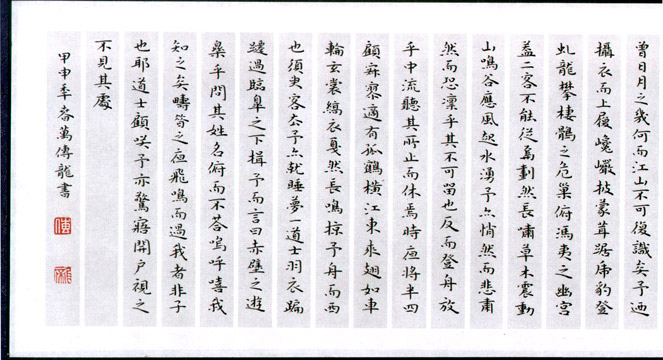 曾日月之幾何而江山不可復識矣予迺
攝衣而上履巉巖披蒙茸踞虎豹登
虬龍攀棲鶻之危巢俯馮夷之幽宮
蓋二客不能從焉劃然長嘯草木震動
山鳴谷應風起水湧予亦悄然而悲肅
然而恐凜乎其不可留也反而登舟放
乎中流聽其所止而休焉時夜將半四
顧寂寥適有孤鶴橫江東來翅如車
輪玄裳縞衣戛然長鳴掠予舟而西
也須臾客去予亦就睡夢一道士羽衣蹁
躚過臨皋之下揖予而言曰赤壁之遊
樂乎問其姓名俯而不荅嗚呼嘻我
知之矣疇昔之夜飛鳴而過我者非子
也耶道士顧笑予亦驚寤開戶視之
不見其處
甲申季春萬傳龍書
傳
龍